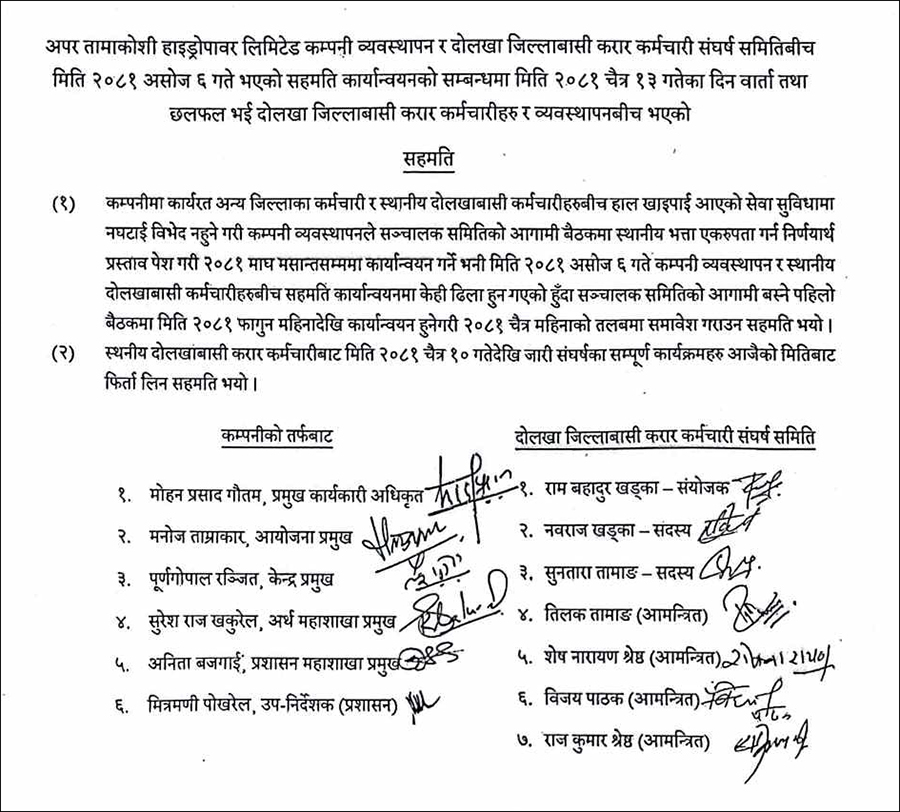 अपर तामाकोशी हाइड्रोपावर लिमिटेड कम्पनी व्यवस्थापन र दोलखा जिल्लाबासी करार कर्मचारी संघर्ष समितिबीच
मिति २०८१ असोज ६ गते भएको सहमति कार्यान्वयनको सम्बन्धमा मिति २०८१ चैत्र १३ गतेका दिन वार्ता तथा
छलफल भई दोलखा जिल्लाबासी करार कर्मचारीहरु र व्यवस्थापनबीच भएको
सहमति
(१) कम्पनीमा कार्यरत अन्य जिल्लाका कर्मचारी र स्थानीय दोलखाबासी कर्मचारीहरुबीच हाल खाइपाई आएको सेवा सुविधामा
नघटाई विभेद नहुने गरी कम्पनी व्यवस्थापनले सञ्चालक समितिको आगामी बैठकमा स्थानीय भत्ता एकरुपता गर्न निर्णयार्थ
प्रस्ताव पेश गरी २०८१ माघ मसान्तसम्ममा कार्यान्वयन गर्ने भनी मिति २०८१ असोज ६ गते कम्पनी व्यवस्थापन र स्थानीय
दोलखाबासी कर्मचारीहरुबीच सहमति कार्यान्वयनमा केही ढिला हुन गएको हुँदा सञ्चालक समितिको आगामी बस्ने पहिलो
बैठकमा मिति २०८१ फागुन महिनादेखि कार्यान्वयन हुनेगरी २०८१ चैत्र महिनाको तलबमा समावेश गराउन सहमति भयो।
(२) स्थनीय दोलखाबासी करार कर्मचारीबाट मिति २०८१ चैत्र १० गतेदेखि जारी संघर्षका सम्पूर्ण कार्यक्रमहरु आजैको मितिबाट
फिर्ता लिन सहमति भयो।
कम्पनीको तर्फबाट
१. मोहन प्रसाद गौतम, प्रमुख कार्यकारी अधिकृत
२. मनोज ताम्राकार, आयोजना प्रमुख
३. पूर्णगोपाल रञ्जित, केन्द्र प्रमुख
४. सुरेश राज खकुरेल, अर्थ महाशाखा प्रमुख
५. अनिता बजगाई, प्रशासन महाशाखा प्रमुख
६. मित्रमणी पोखरेल, उप-निर्देशक (प्रशासन)
दोलखा जिल्लाबासी करार कर्मचारी संघर्ष समिति
१. राम बहादुर खड्का – संयोजक
२. नवराज खड्का – सदस्य
३. सुनतारा तामाङ – सदस्य
४. तिलक तामाङ (आमन्त्रित)
५. शेष नारायण श्रेष्ठ (आमन्त्रित)
६. विजय पाठक (आमन्त्रित)
७. राज कुमार श्रेष्ठ (आमन्त्रित)